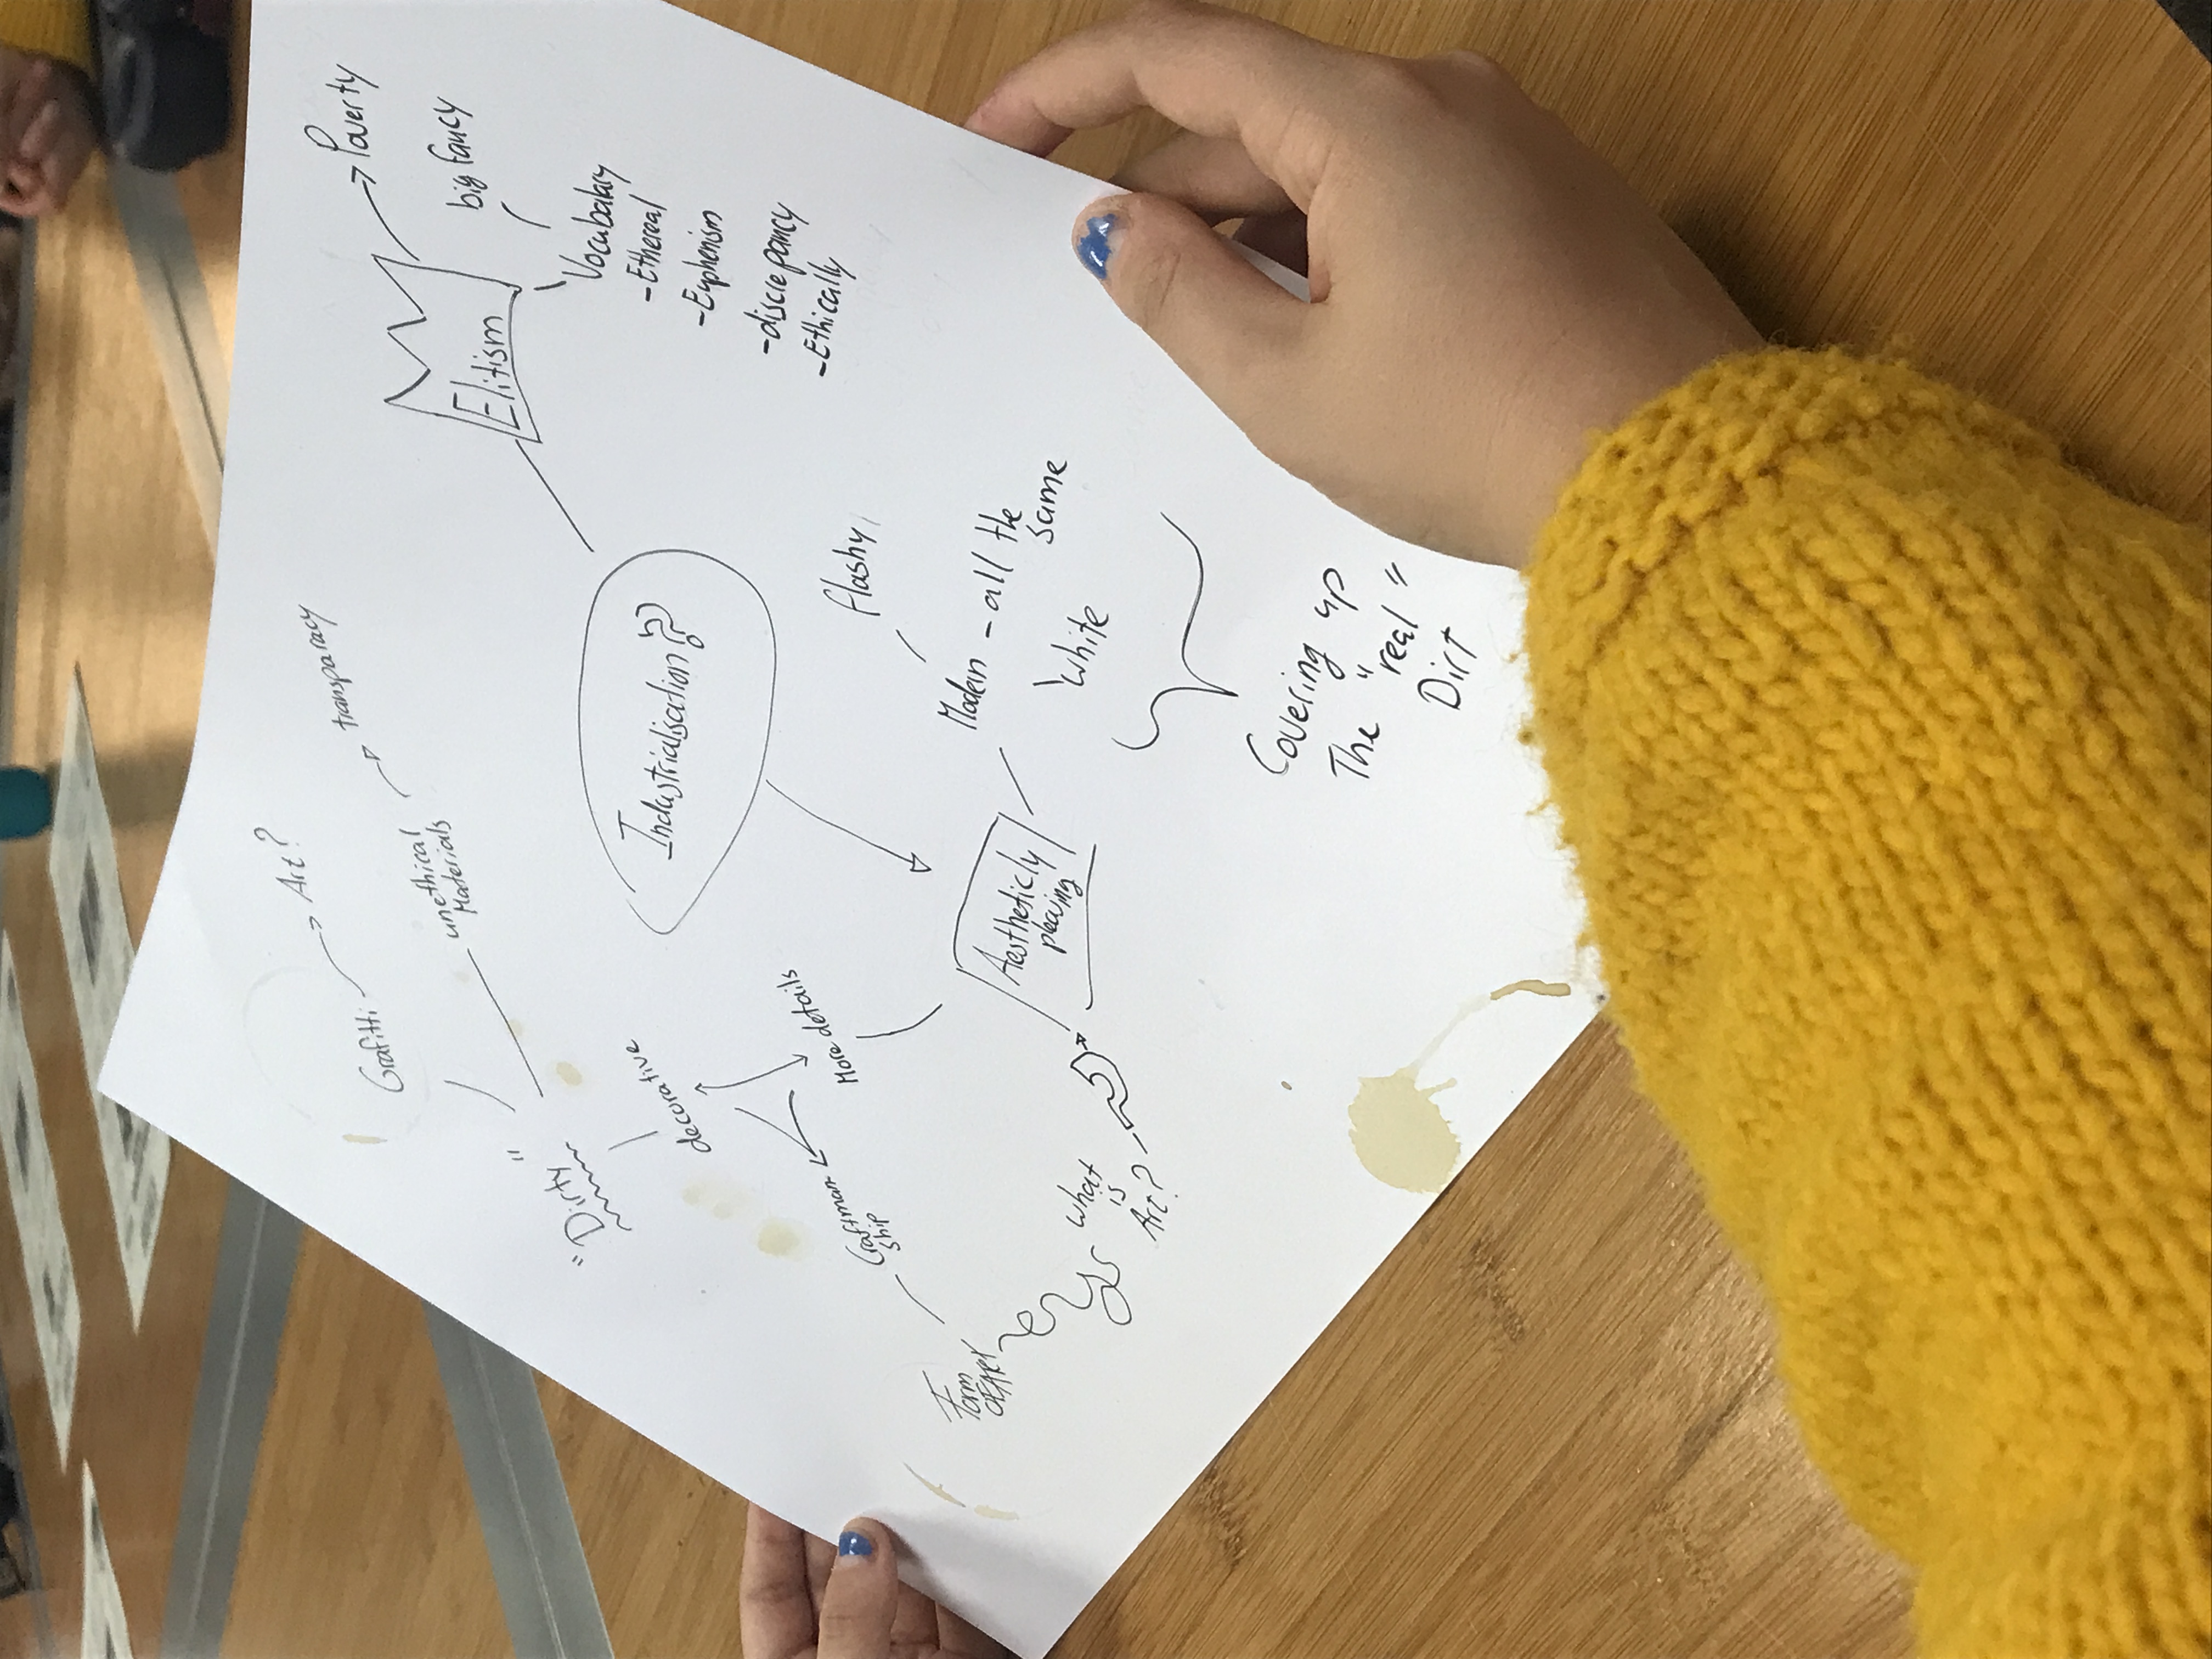 Grafitti
Art?
transparacy
unethical
Materials
"Dirty"
decorative
More details
Craftman
ship
Form
OF ART
what
is
Art?
Industrialisation??
Elitism
Poverty
big fancy
Vocubalary
-Ethereal
-Euphenism
-discrepancy
-Ethically
Aestheticly
pleasing
flashy
Modern - all the
same
White
Covering up
The "real"
Dirt